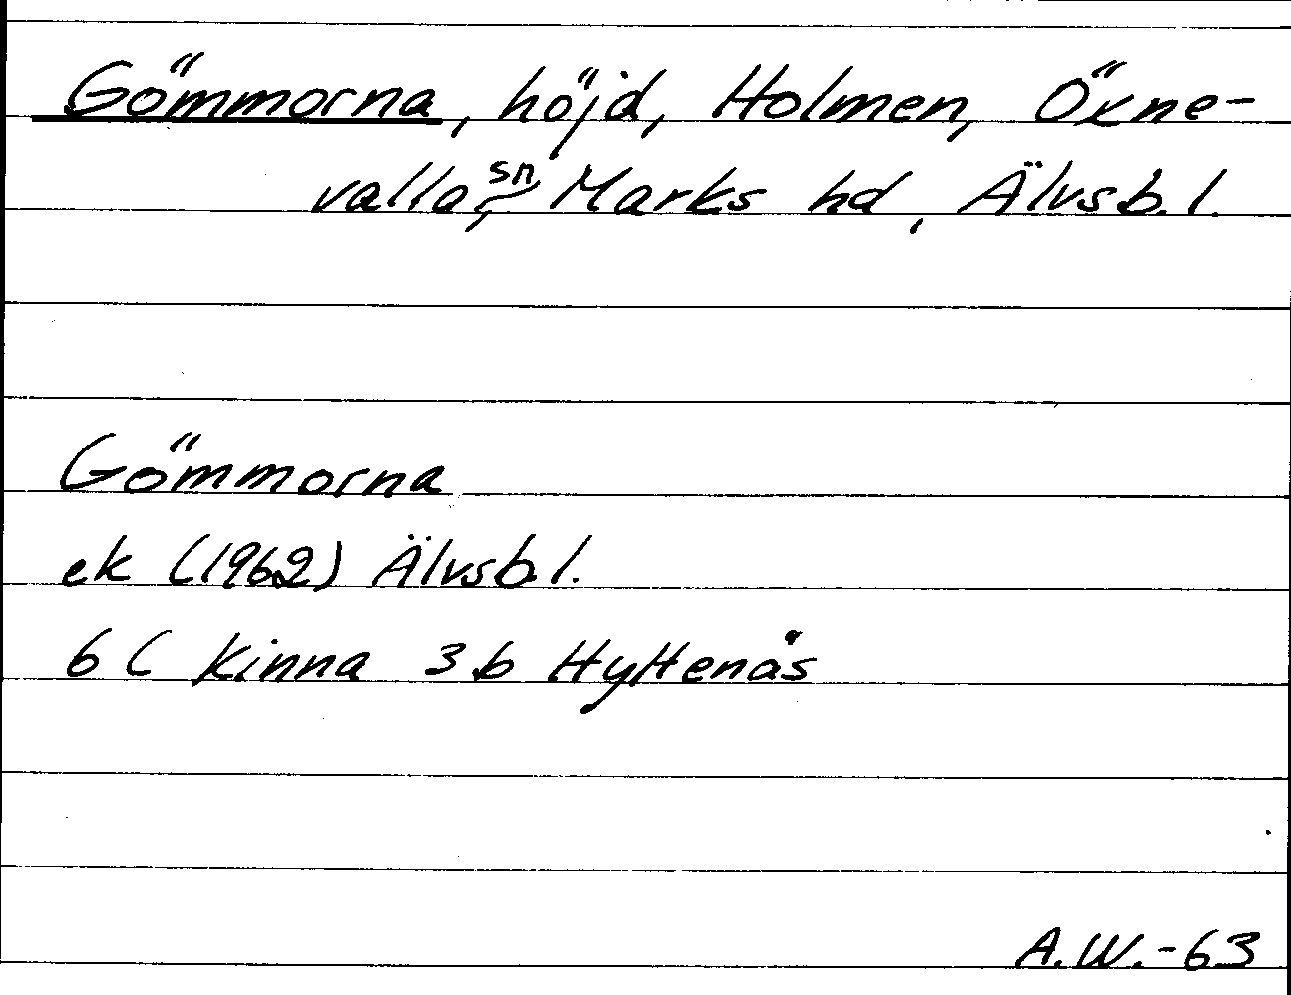 Gömmorna, höjd, Holmen, Öxne-
valla sn, Marks hd, Älvsb. l.
Gömmorna
ek (1962) Älvsb l.
6 C Kinna 3b Hyltenäs
A.W.-63